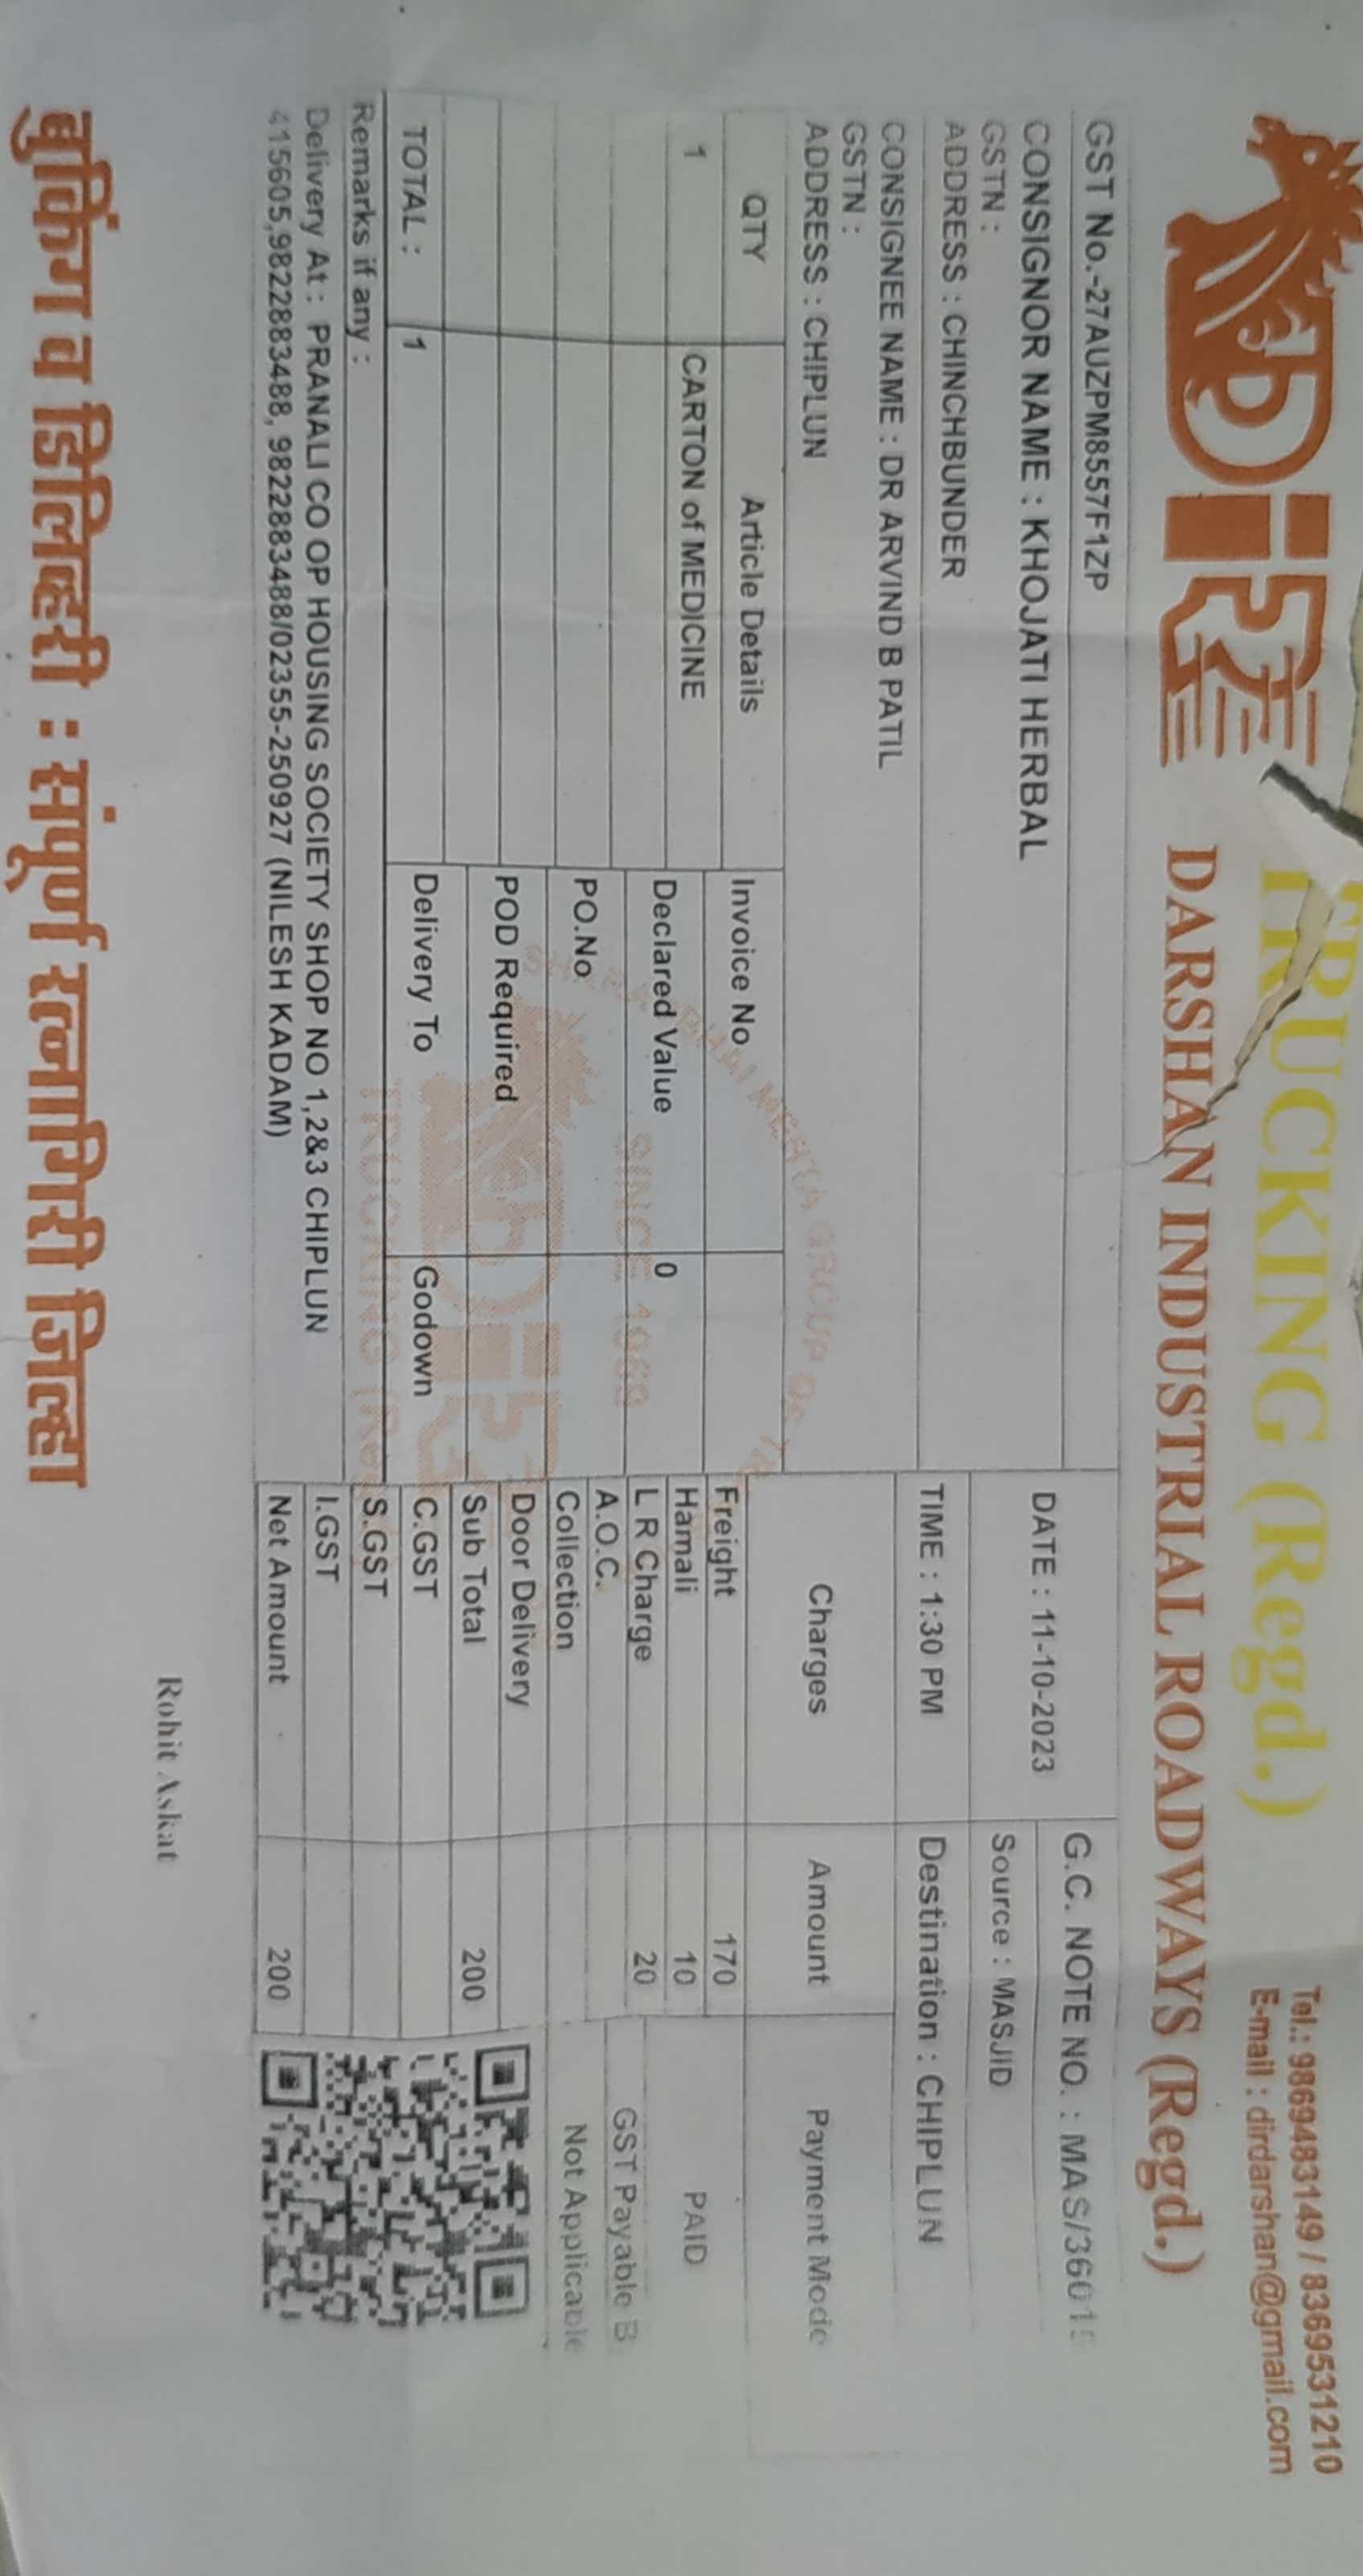 DIR TRUCKING (Regd.)
Tel.: 9869483149 / 8369531210
E-mail : dirdarshan@gmail.com
DARSHAN INDUSTRIAL ROADWAYS (Regd.)
GST No.-27AUZPM8557F1ZP
CONSIGNOR NAME : KHOJATI HERBAL
GSTN :
ADDRESS : CHINCHBUNDER
DATE : 11-10-2023
G.C. NOTE NO. : MAS/3601
Source : MASJID
CONSIGNEE NAME : DR ARVIND B PATIL
GSTN :
ADDRESS : CHIPLUN
TIME : 1:30 PM
Destination : CHIPLUN
Charges Amount Payment Mode
QTY Article Details Invoice No
1 CARTON of MEDICINE Declared Value 0
PO.No
POD Required
TOTAL : 1 Delivery To Godown
Freight 170
Hamali 10 PAID
L R Charge 20
A.O.C. GST Payable B
Collection Not Applicable
Door Delivery
Sub Total 200
C.GST
S.GST
I.GST
Net Amount 200
Remarks if any :
Delivery At : PRANALI CO OP HOUSING SOCIETY SHOP NO 1,2&3 CHIPLUN
415605,9822883488, 9822883488/02355-250927 (NILESH KADAM)
SINCE 1969
TRUCKING
Rohit Askat
बुकिंग व डिलिव्हरी : संपूर्ण रत्नागिरी जिल्हा